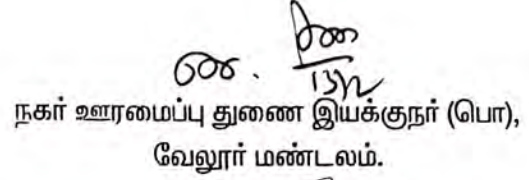 நகர் ஊரமைப்பு துணை இயக்குநர் (பொ),
வேலூர் மண்டலம்.